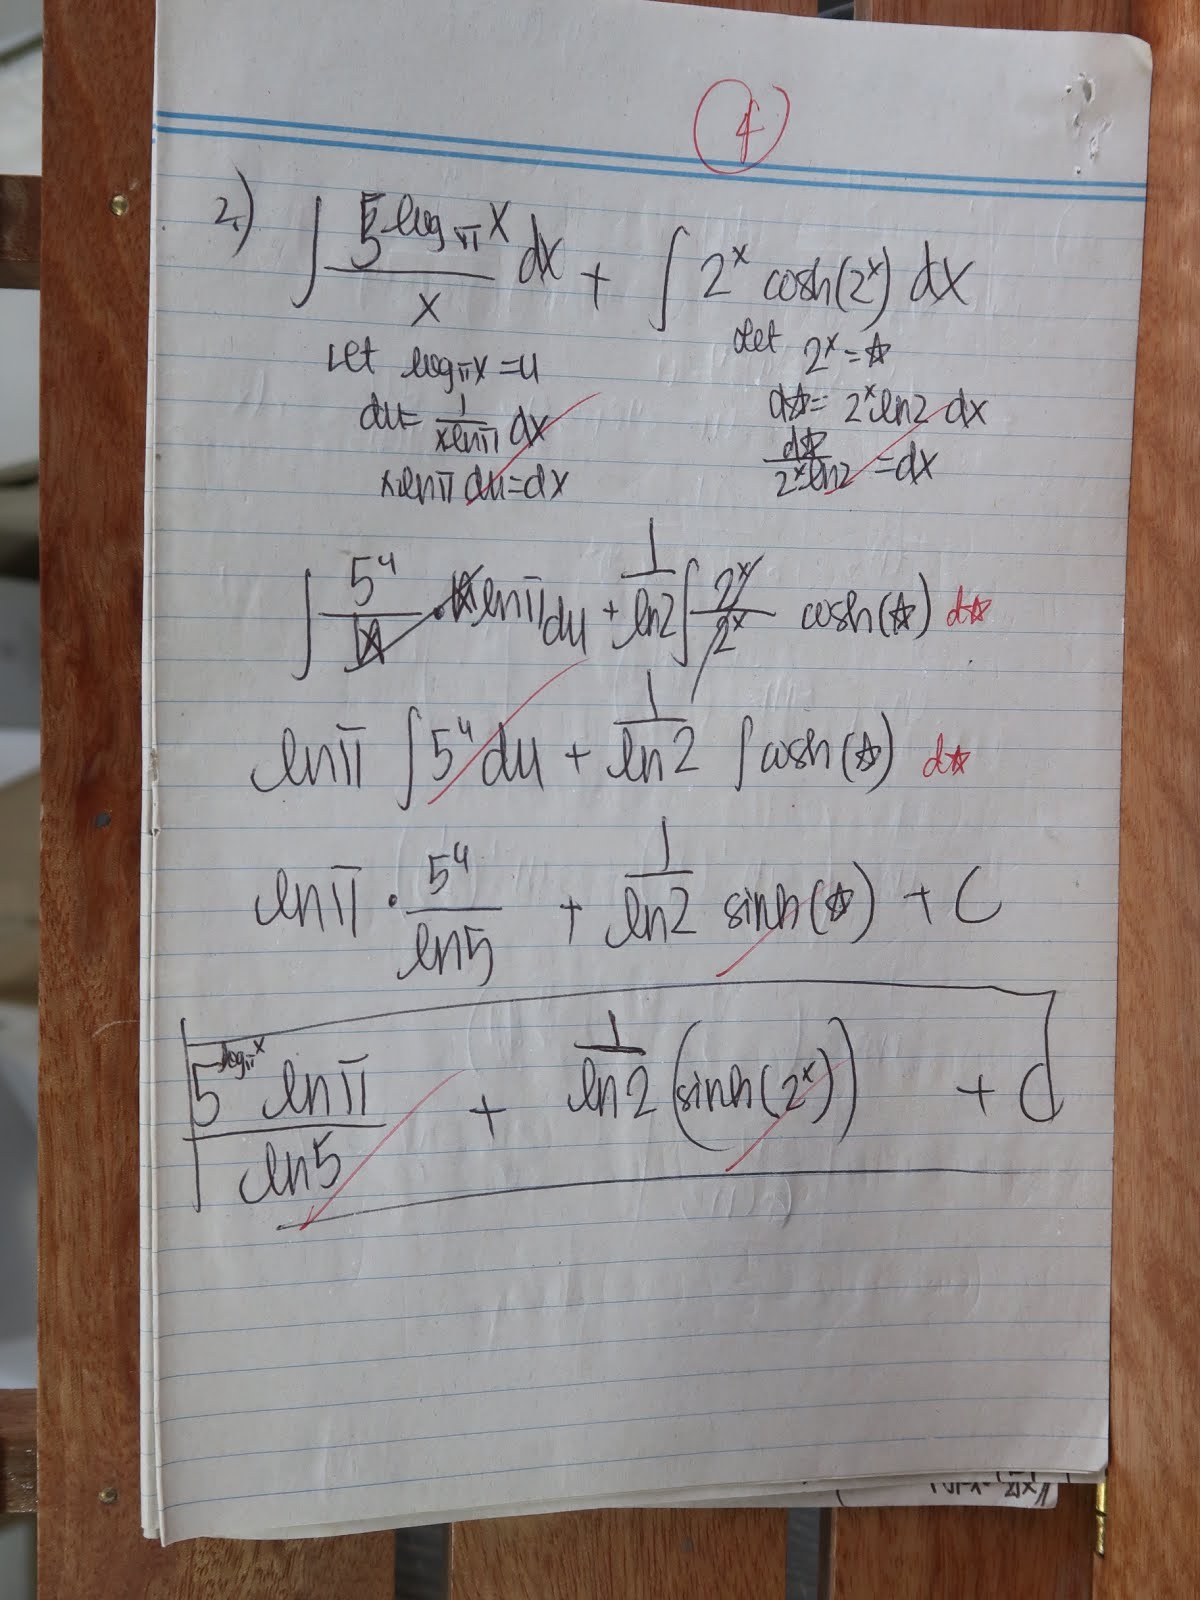 4
2.) ∫ 5^(log_π x) / x dx + ∫ 2^x cosh(2^x) dx
Let log_π x = u    let 2^x = ☆
du = 1/(x ln π) dx    d☆ = 2^x ln2 dx
x ln π du = dx    d☆/(2^x ln2) = dx
∫ 5^u / x · x ln π du + 1/ln2 ∫ 2^x / 2^x cosh(☆) d☆
ln π ∫ 5^u du + 1/ln2 ∫ cosh(☆) d☆
ln π · 5^u / ln5 + 1/ln2 sinh(☆) + C
5^(log_π x) ln π / ln5 + 1/ln2 (sinh(2^x)) + C